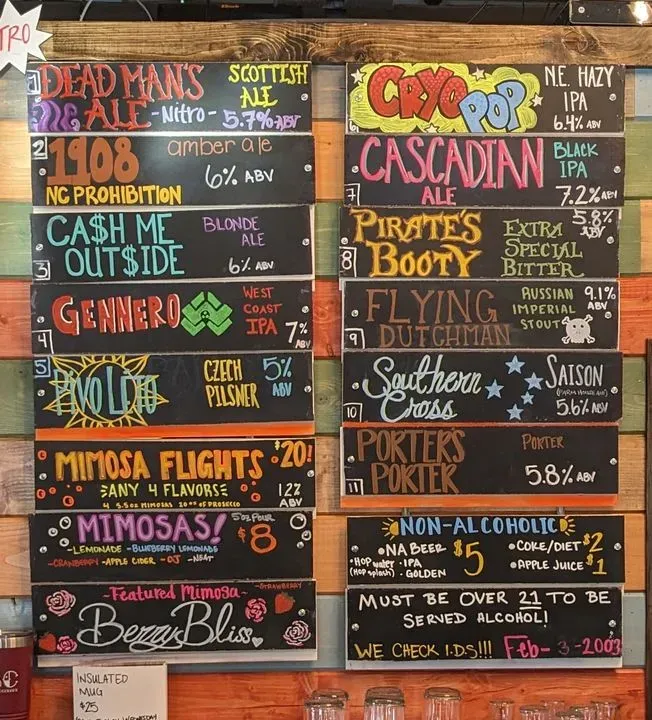 TRO
1
DEAD MAN'S
ALE -Nitro-
SCOTTISH
ALE
5.7% ABV
2
1908
NC PROHIBITION
amber ale
6% ABV
3
CA$H ME
OUT$IDE
BLONDE
ALE
6% ABV
4
GENNERO
WEST
COAST
IPA
7%
ABV
5
PIVO LETO
CZECH
PILSNER
5%
ABV
MIMOSA FLIGHTS
$20!
ANY 4 FLAVORS
4 5.5oz MIMOSAS 20oz OF PROSECCO
12%
ABV
MIMOSAS!
5oz POUR
$8
-LEMONADE -BLUEBERRY LEMONADE
-CRANBERRY -APPLE CIDER -OJ -NEAT
-Featured Mimosa-
-STRAWBERRY
BerryBliss
INSULATED
MUG
$25
6
CRYO
POP
N.E. HAZY
IPA
6.4% ABV
7
CASCADIAN
ALE
BLACK
IPA
7.2% ABV
8
PIRATE'S
BOOTY
EXTRA
SPECIAL
BITTER
5.8%
ABV
9
FLYING
DUTCHMAN
RUSSIAN
IMPERIAL
STOUT
9.1%
ABV
10
Southern
Cross
SAISON
(FARM HOUSE ALE)
5.6% ABV
11
PORTER'S
PORTER
PORTER
5.8% ABV
NON-ALCOHOLIC
•NA BEER $5
•Hop water
(Hop splash)
·IPA
·GOLDEN
•COKE/DIET $2
•APPLE JUICE $1
MUST BE OVER 21 TO BE
SERVED ALCOHOL!
WE CHECK I.D.S!!! Feb- 3 -2003